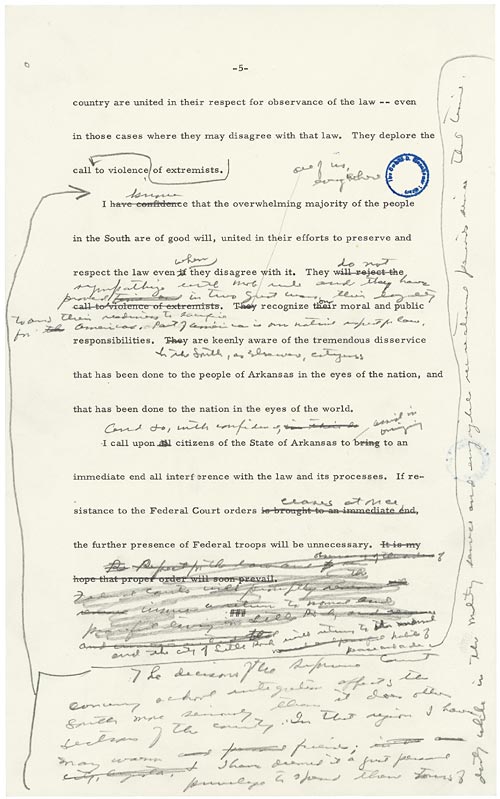 -5-
country are united in their respect for observance of the law -- even
in those cases where they may disagree with that law. They deplore the
call to violence of extremists.
know
I have confidence that the overwhelming majority of the people
in the South are of good will, united in their efforts to preserve and
when do not
respect the law even if they disagree with it. They will reject the
sympathize with mob rule and they have
proved in two great wars their
call to violence of extremists. They recognize their moral and public
and their readiness to sacrifice
for America. And America is
responsibilities. They are keenly aware of the tremendous disservice
that has been done to the people of Arkansas in the eyes of the nation, and
that has been done to the nation in the eyes of the world.
And so, with confidence assist in
bringing
I call upon all citizens of the State of Arkansas to bring to an
immediate end all interference with the law and its processes. If re-
ceases at once
sistance to the Federal Court orders is brought to an immediate end,
the further presence of Federal troops will be unnecessary. It is my
hope that proper order will soon prevail.
and the city of Little Rock will return to its normal
habits of
The decision of the Supreme Court
concerning school integration affects the
South more seriously than it does other
sections of the country. In that region I have
many warm friends,
I have deemed it a great personal
privilege to spend there tours of
duty while in the military service and enjoyable recreational periods since that time.